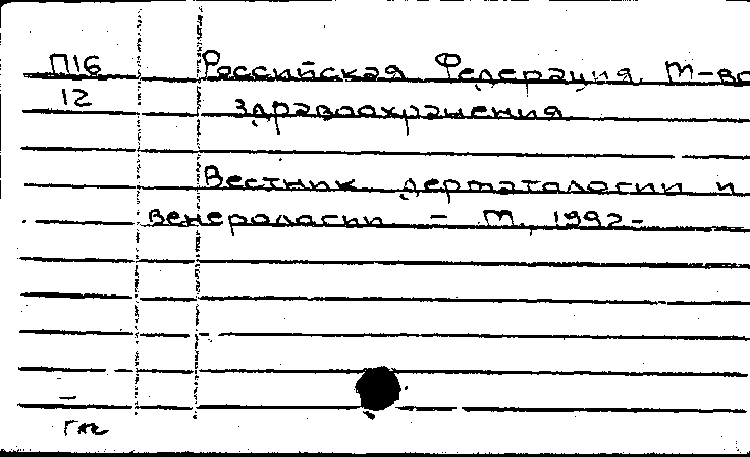 П16 Российская Федерация. М-во
12 здравоохранения
Вестник дерматологии и
венерологии. - М., 1992-